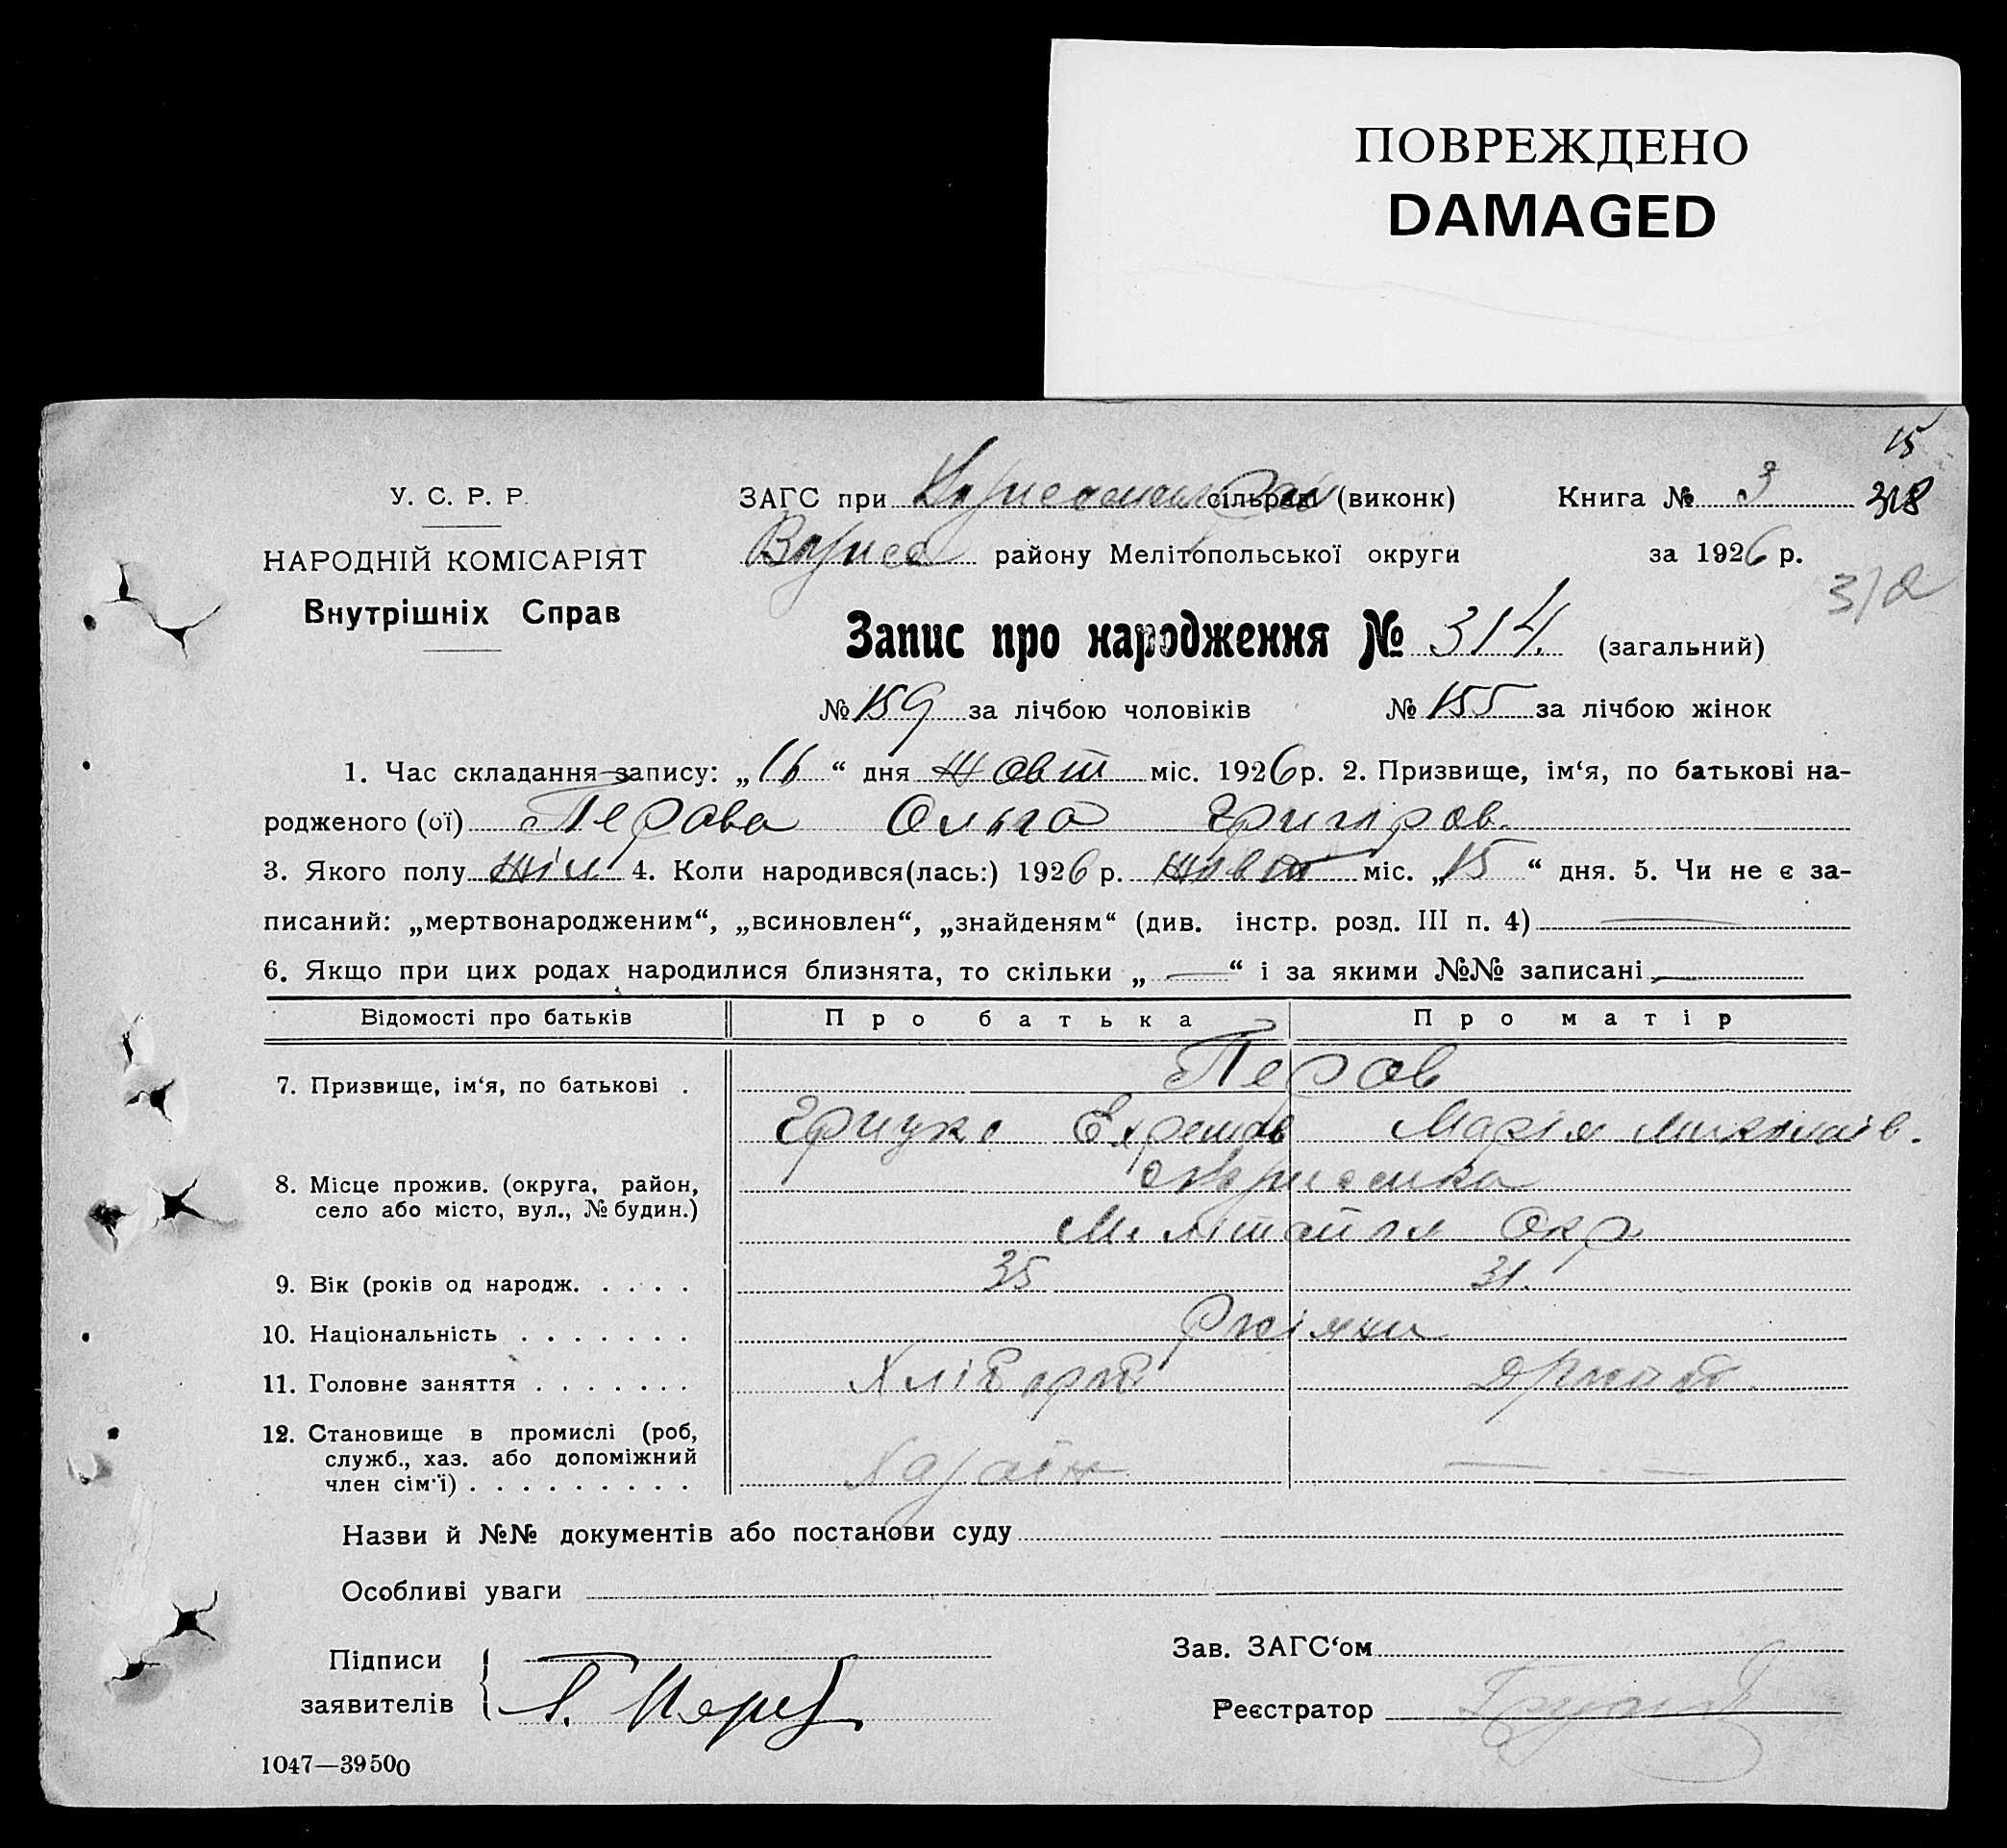 ПОВРЕЖДЕНО
DAMAGED
15
У. С. Р. Р. ЗАГС при сільраді (виконк) Книга № 3 318
НАРОДНІЙ КОМІСАРІЯТ району Мелітопольської округи за 1926 р.
312
Внутрішніх Справ
Запис про народження № 314. (загальний)
№ 159 за лічбою чоловіків № 155 за лічбою жінок
1. Час складання запису: „16“ дня Жовт міс. 1926 р. 2. Призвище, ім‘я, по батькові на-
родженого (ої) Перова Ольга Григоров.
3. Якого полу жін 4. Коли народився(лась:) 1926 р. Жовт міс. „15“ дня. 5. Чи не є за-
писаний: „мертвонародженим“, „всиновлен“, „знайденям“ (див. інстр. розд. III п. 4)
6. Якщо при цих родах народилися близнята, то скільки „ — “ і за якими №№ записані —
Відомості про батьків Про батька Про матір
7. Призвище, ім‘я, по батькові . Перов
Грицко Ехремов Марія Миколаїв.
8. Місце прожив. (округа, район,
село або місто, вул., № будин.)
Окр
9. Вік (років од народж. . . . . 35 31.
10. Національність . . . . . . . Росіяни
11. Головне заняття . . . . . . . Хлібороб
12. Становище в промислі (роб,
служб., хаз. або допоміжний
член сім‘ї) . . . . . . . . . Хазаїн — . —
Назви й №№ документів або постанови суду
Особливі уваги
Підписи
заявителів
Зав. ЗАГС‘ом
Реєстратор
1047—39500